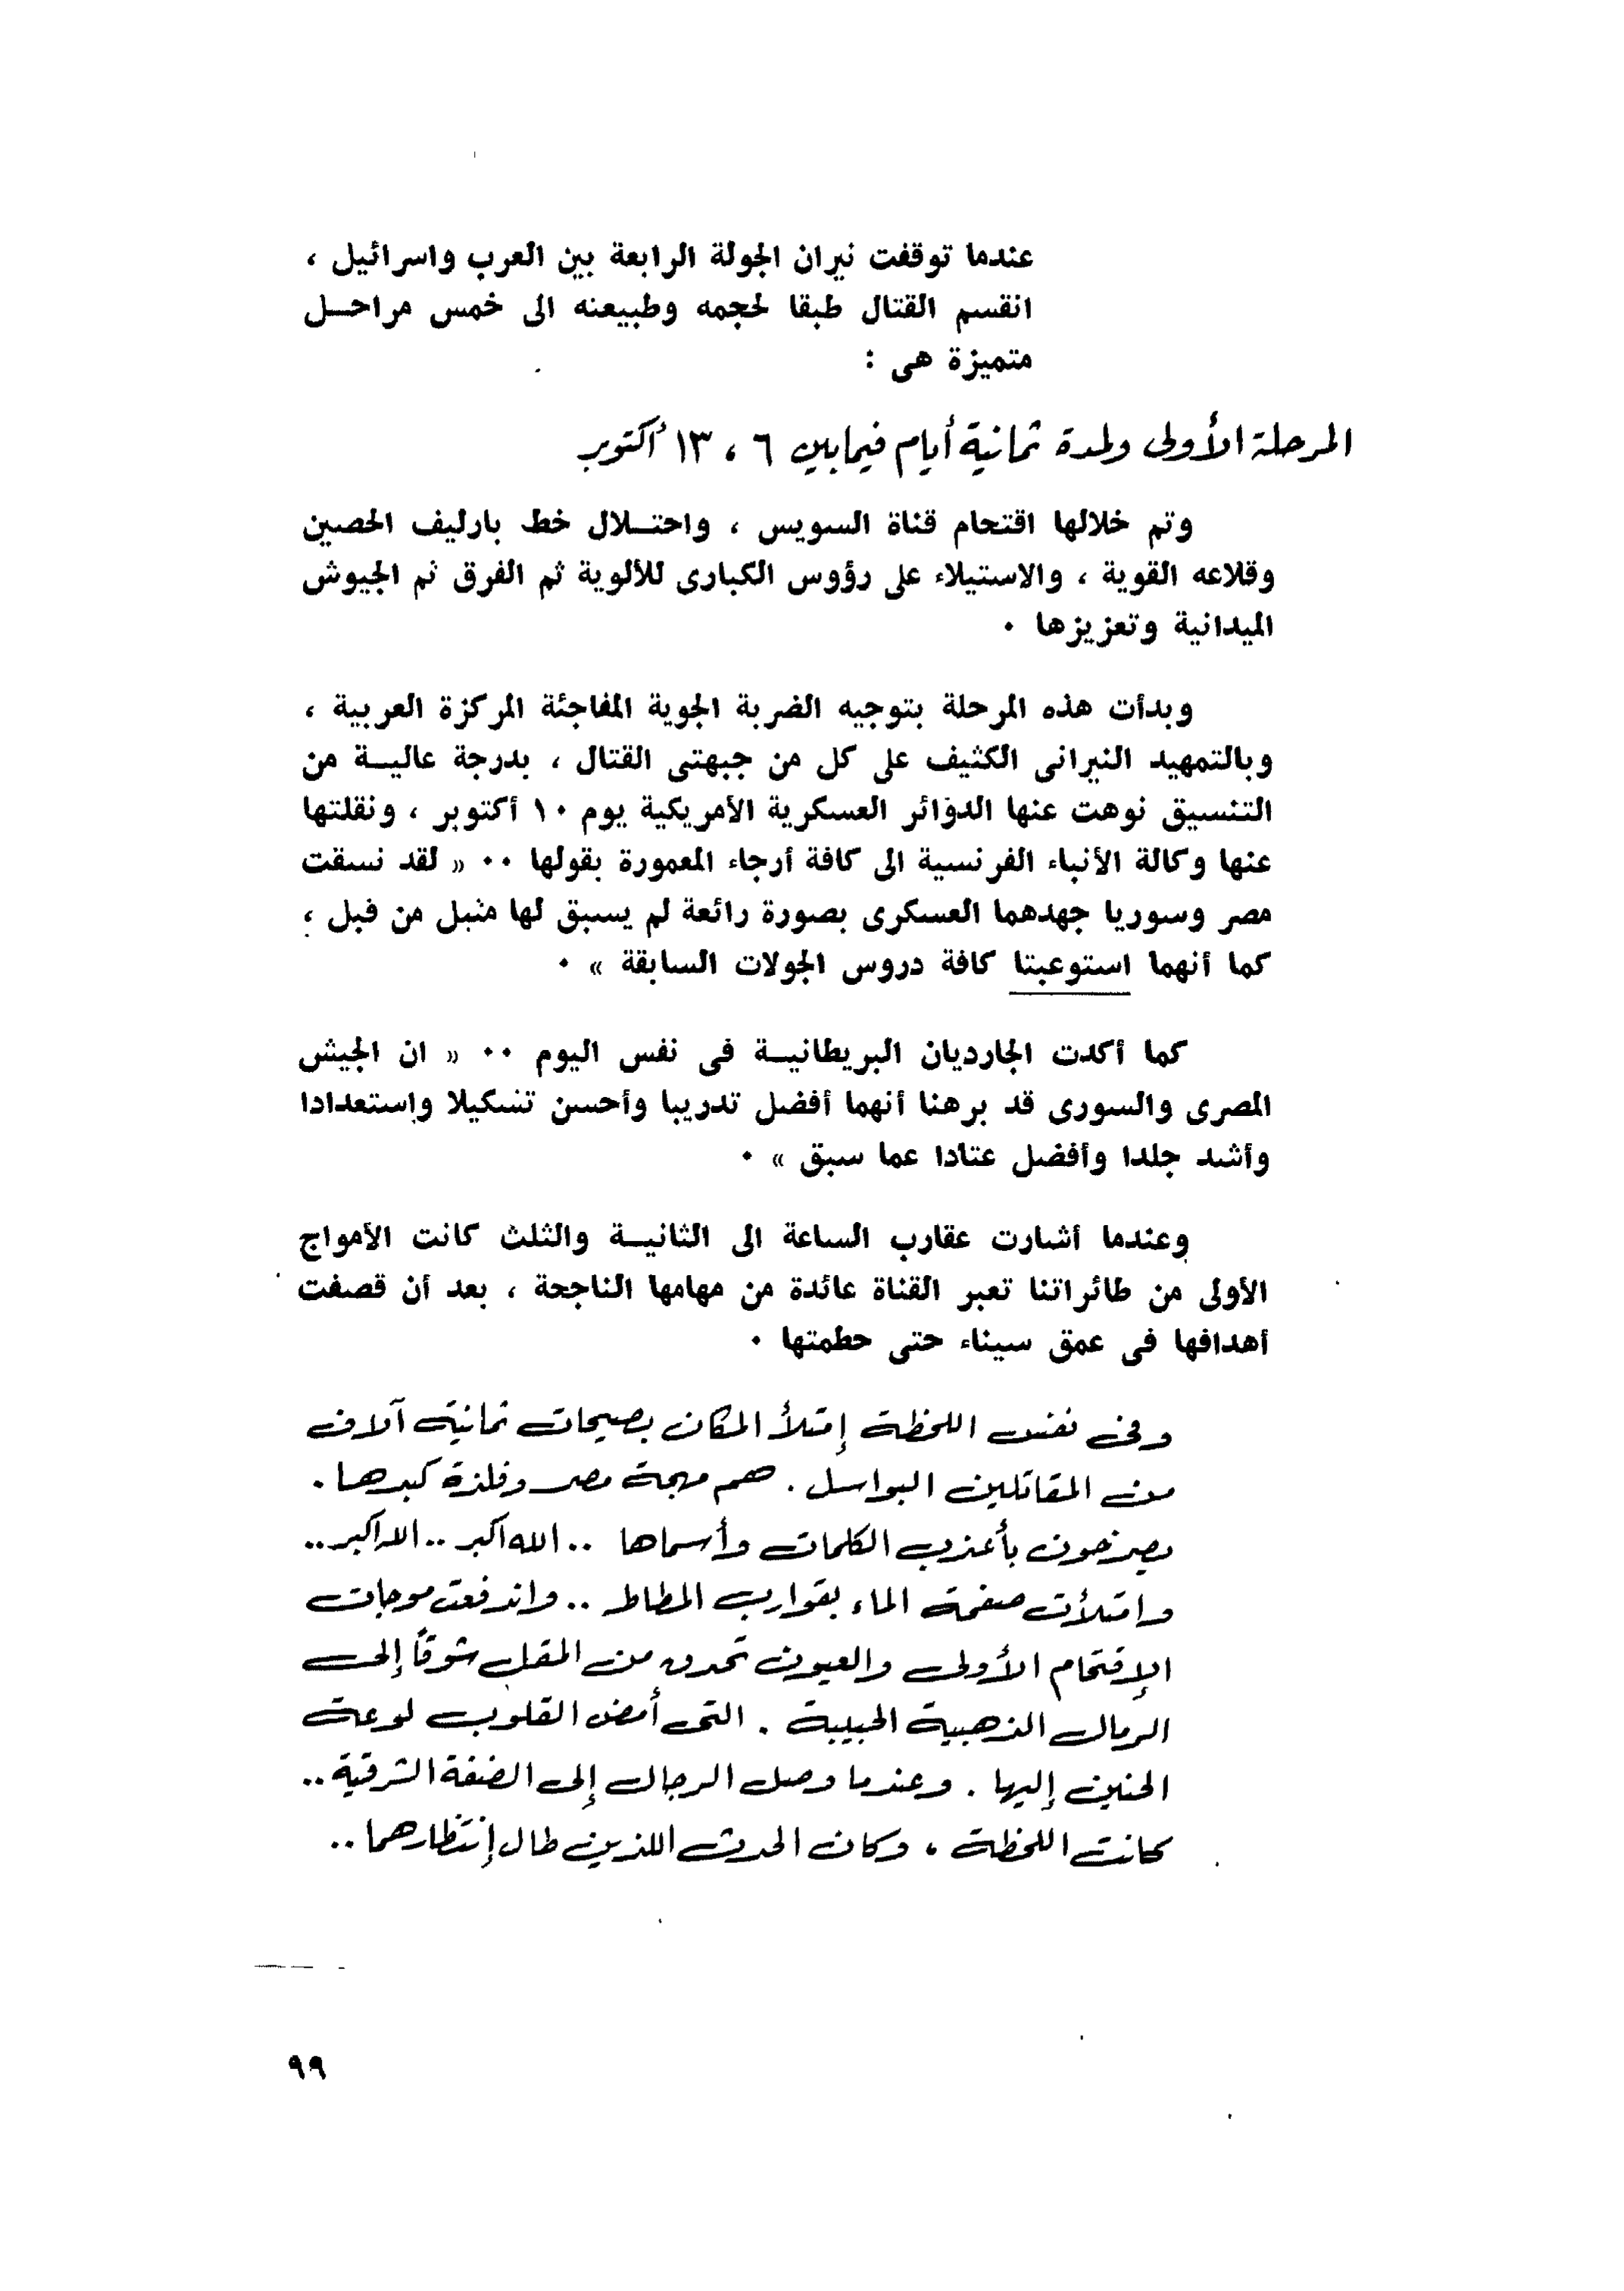 عندما توقفت نيران الجولة الرابعة بين العرب واسرائيل ،
انقسم القتال طبقا لحجمه وطبيعته الى خمس مراحل
متميزة هى :
المرحلة الأولى ولمدة ثمانية أيام فيما بين ٦ ، ١٣ أكتوبر
وتم خلالها اقتحام قناة السويس ، واحتلال خط بارليف الحصين
وقلاعه القوية ، والاستيلاء على رؤوس الكبارى للألوية ثم الفرق ثم الجيوش
الميدانية وتعزيزها ٠
وبدأت هذه المرحلة بتوجيه الضربة الجوية المفاجئة المركزة العربية ،
وبالتمهيد النيرانى الكثيف على كل من جبهتى القتال ، بدرجة عالية من
التنسيق نوهت عنها الدوائر العسكرية الأمريكية يوم ١٠ أكتوبر ، ونقلتها
عنها وكالة الأنباء الفرنسية الى كافة أرجاء المعمورة بقولها ٠٠ « لقد نسقت
مصر وسوريا جهدهما العسكرى بصورة رائعة لم يسبق لها مثيل من قبل ،
كما أنهما استوعبتا كافة دروس الجولات السابقة » ٠
كما أكدت الجارديان البريطانية فى نفس اليوم ٠٠ « ان الجيش
المصرى والسورى قد برهنا أنهما أفضل تدريبا وأحسن تشكيلا واستعدادا
وأشد جلدا وأفضل عتادا عما سبق » ٠
وعندما أشارت عقارب الساعة الى الثانية والثلث كانت الأمواج
الأولى من طائراتنا تعبر القناة عائدة من مهامها الناجحة ، بعد أن قصفت
أهدافها فى عمق سيناء حتى حطمتها ٠
وفى نفس اللحظة إمتلأ المكان بصيحات ثمانية آلاف
من المقاتلين البواسل . هم مهجة مصر وفلذة كبدها .
يصرخون بأعذب الكلمات وأسماها .. الله أكبر .. الله أكبر ..
وامتلأت صفحة الماء بقوارب المطاط .. واندفعت موجات
الإقتحام الأولى والعيون تحدق من المقل شوقاً إلى
الرمال الذهبية الحبيبة . التى أمض القلوب لوعة
الحنين إليها . وعندما وصل الرجال إلى الضفة الشرقية ..
كانت اللحظة ، وكان الحدث اللذين طال إنتظارهما ..
٩٩